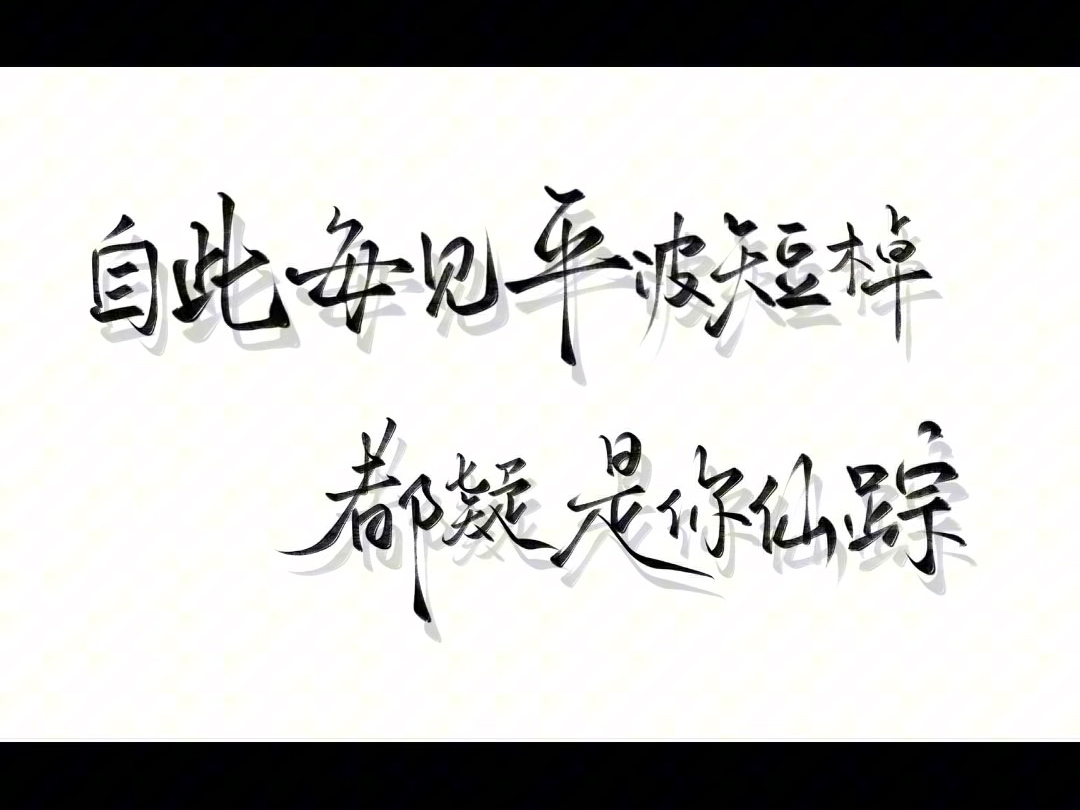 自此每见平波短棹
都疑是你仙踪